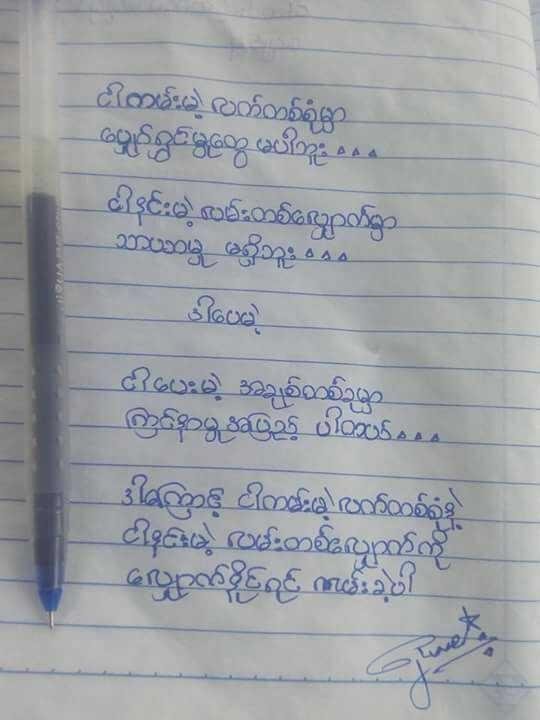 ငါကမ်းမဲ့ လက်တစ်စုံမှာ
ပျော်ရွှင်မှုတွေ မပါဘူး ...
ငါခင်းမဲ့ လမ်းတစ်လျှောက်မှာ
သာယာမှု မရှိဘူး ...
ဒါပေမဲ့
ငါပေးမဲ့ အချစ်တစ်ခုမှာ
ကြင်နာမှုအပြည့် ပါတယ် ...
ဒါကြောင့် ငါကမ်းမဲ့လက်တစ်စုံနဲ့
ငါခင်းမဲ့ လမ်းတစ်လျှောက်ကို
လျှောက်နိုင်ရင် ကမ်းခဲ့ပါ